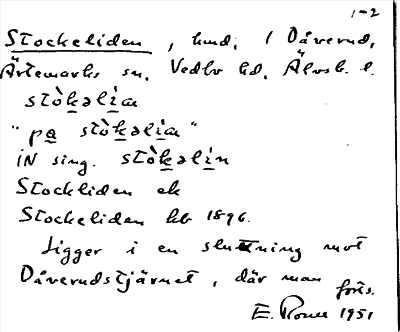 1-2
Stockeliden, hmd. i Dåverud,
Ärtemarks sn. Vedbo hd. Älvsb. l.
stòkəlia
"pa stòkəlia"
iN sing. stòkəlin
Stockliden ek
Stockeliden kb 1896.
Ligger i en sluttning mot
Dåverudstjärnet, där man
forts.
E. 1951